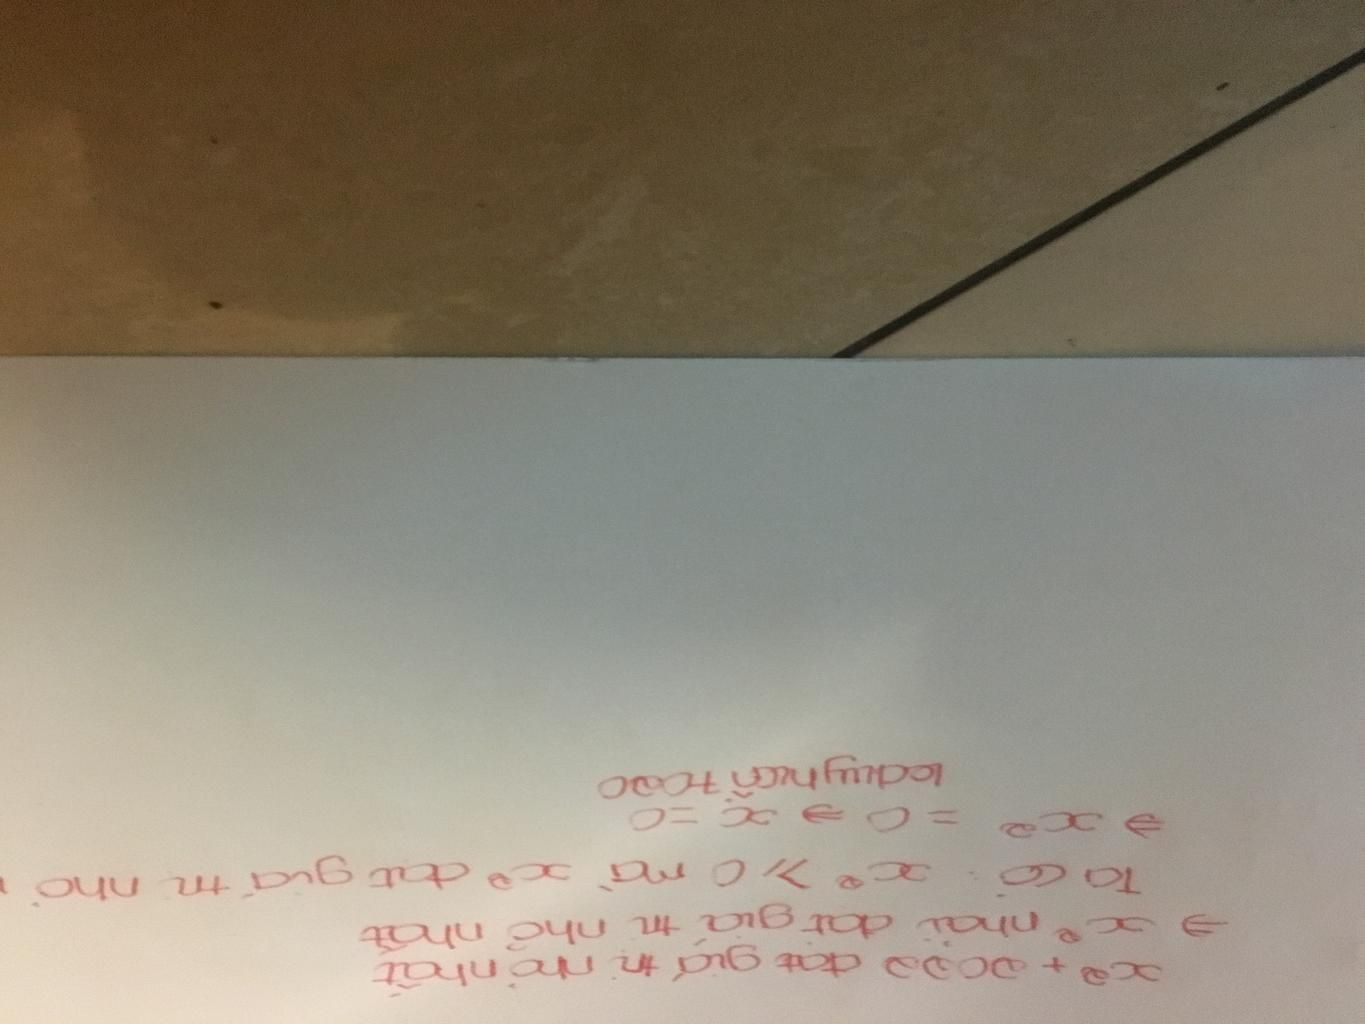 x² + 2022 đạt giá trị nhỏ nhất
⇒ x² phải đạt giá trị nhỏ nhất
Ta có: x² ≥ 0 mà x² đạt giá trị nhỏ
⇒ x² = 0 ⇒ x = 0